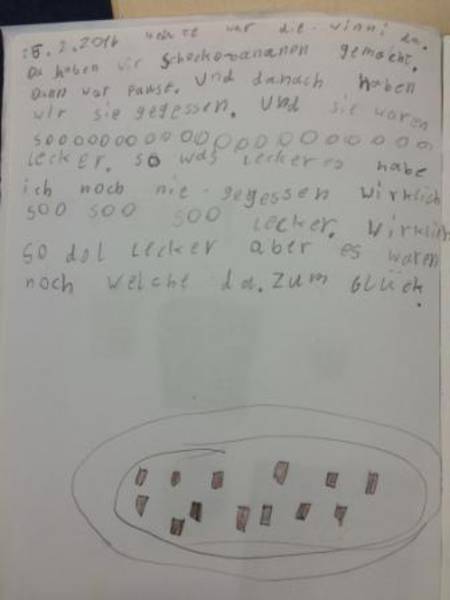 15.2.2016 heute war die Vinni da.
Da haben wir Schockobananen gemacht.
Dann war Pause. Und danach haben
wir sie gegessen. Und sie waren
sooooooooooooooooooo
lecker. so was leckeres habe
ich noch nie gegessen wirklich
soo soo soo lecker. Wirklich
so dol lecker aber es waren
noch welche da. Zum Glück.